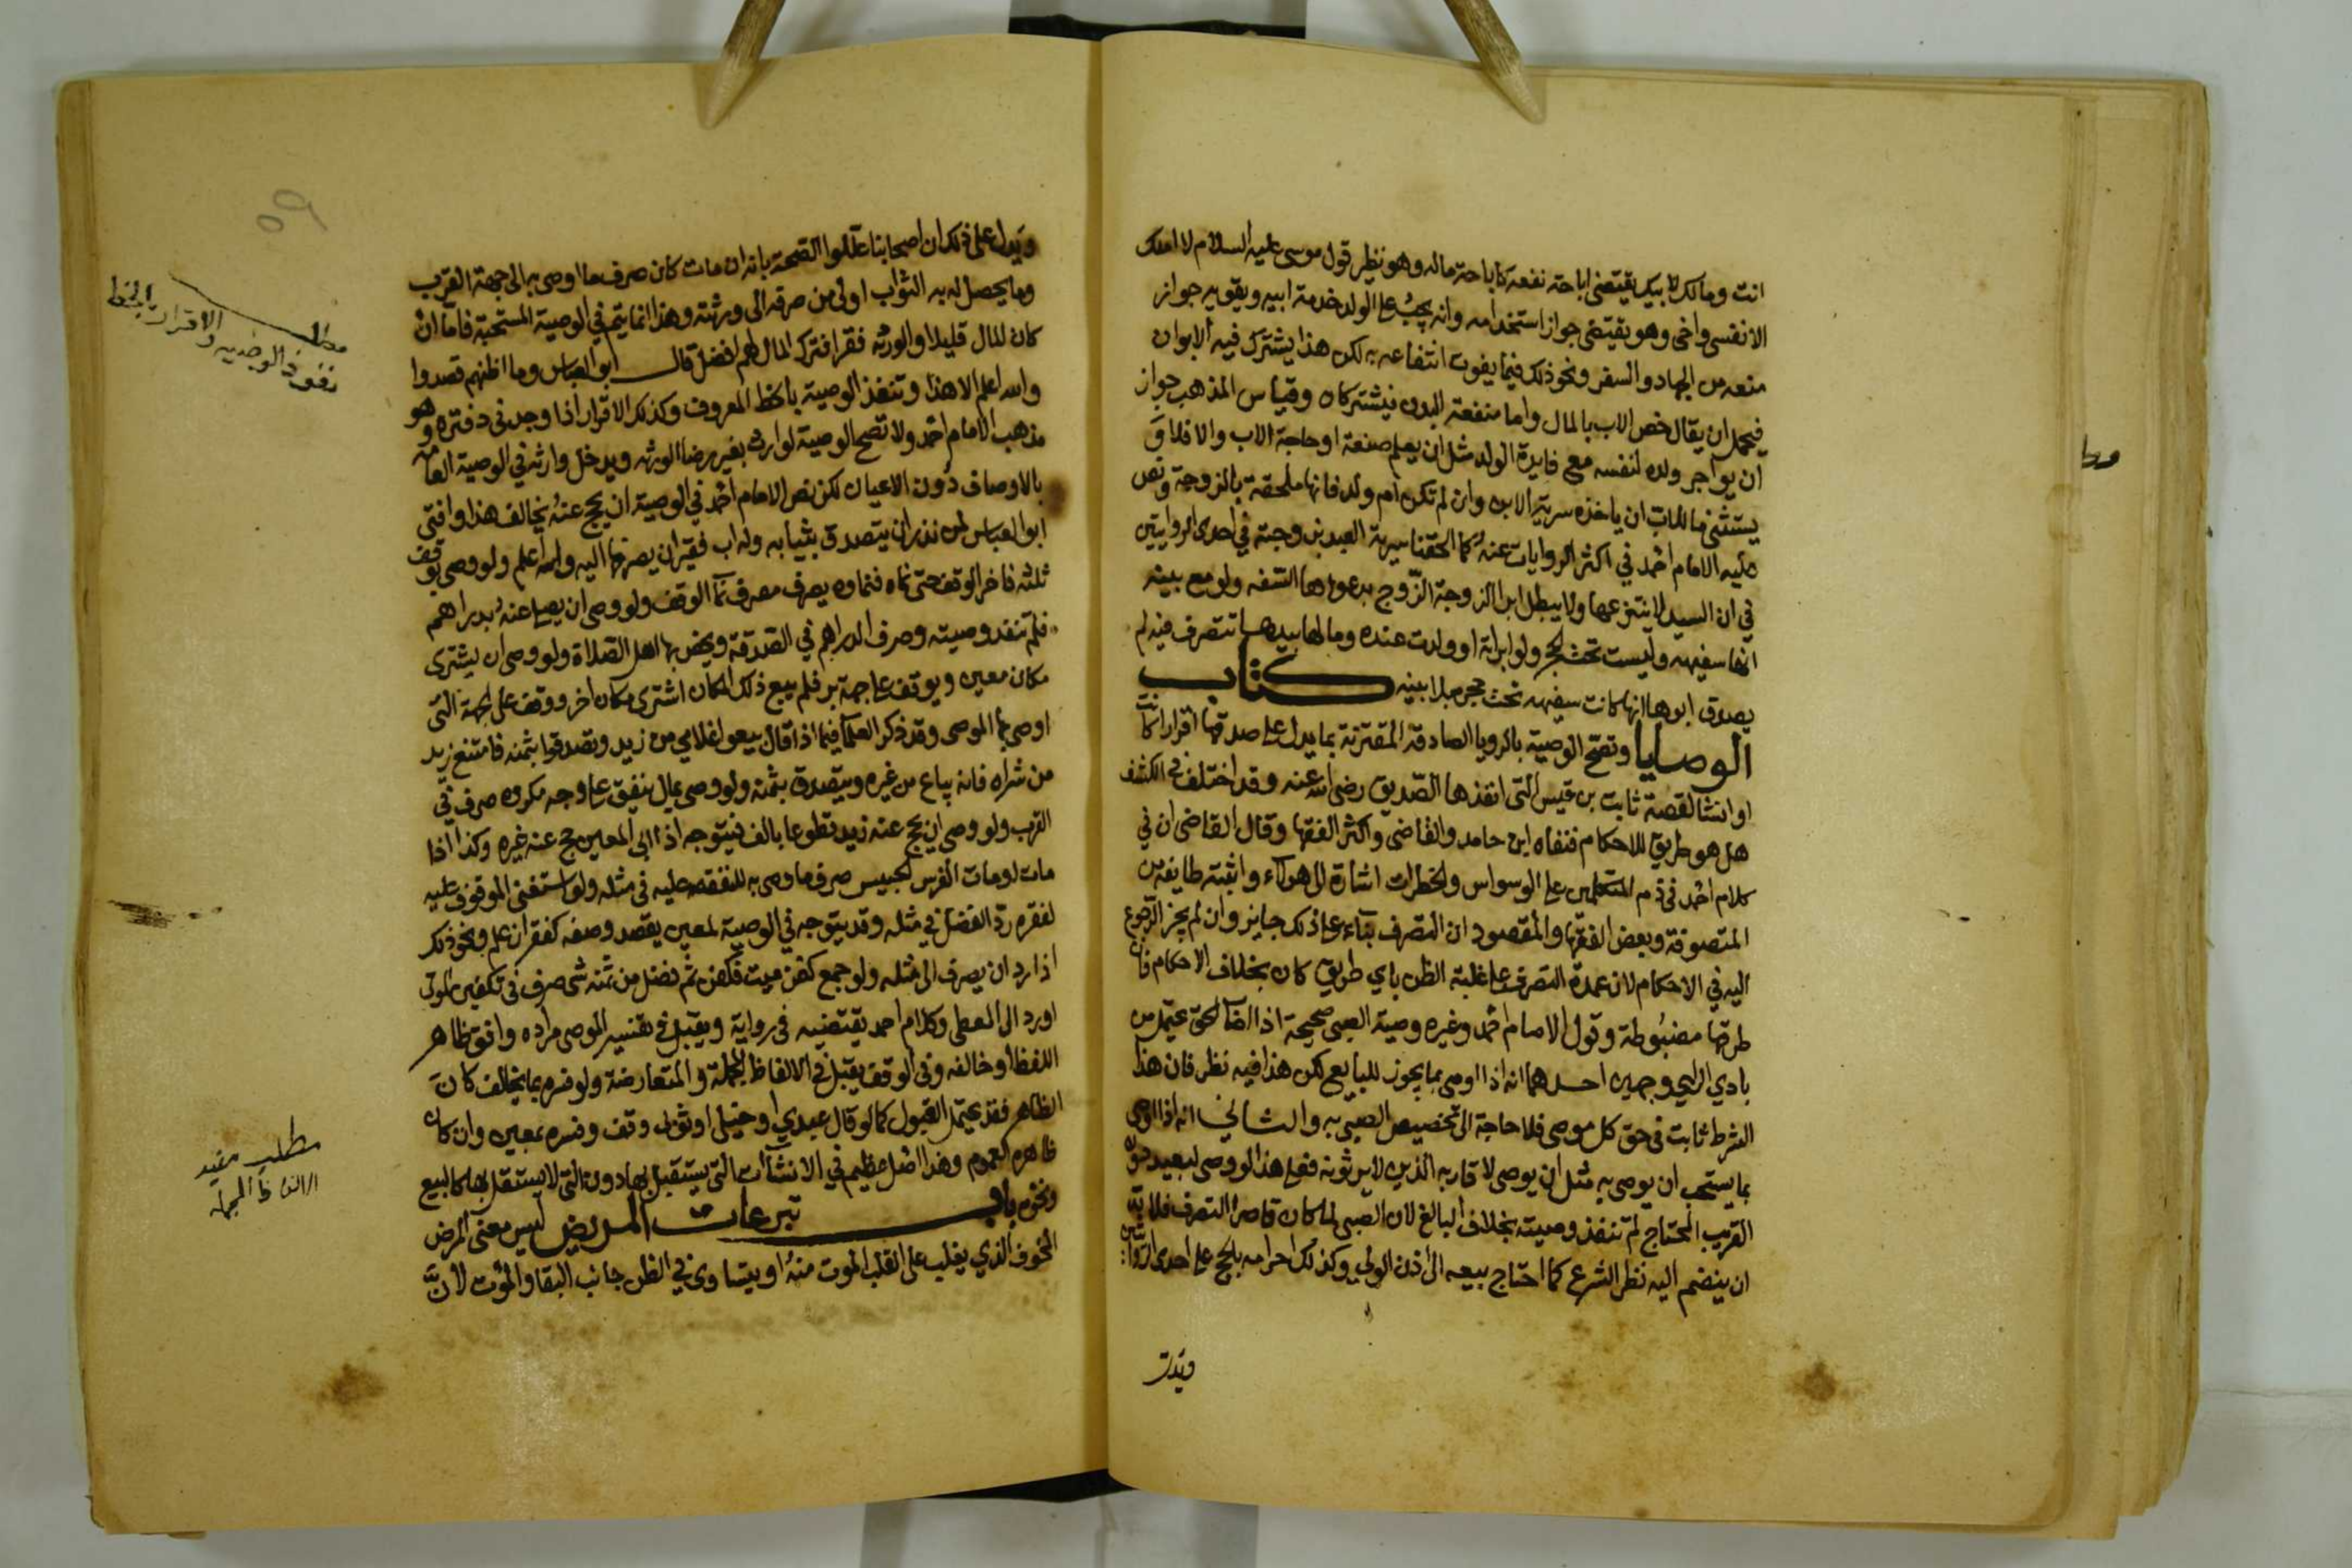 انت ومالك لابيك يقتضي اباحة نفعه كاباحة ماله وهو نظير قول موسى عليه السلام لا املك
الا نفسي واخي وهو يقتضي جواز استخدامه وانه يجب على الولد خدمة ابيه ويقويه جواز
منعه من الجهاد والسفر ونحو ذلك فيما يفوت انتفاعه به لكن هذا يشترك فيه الابوان
فيحتمل ان يقال خص الاب بالمال واما منفعة البدن فيشتركان وقياس المذهب جواز
ان يواجر ولده لنفسه مع فايدة الولد مثل ان يعلم صنعة او حاجة الاب والا فلا و
يستثنى ما للاب ان ياخذه سرية الابن وان لم تكن ام ولد فانها ملحقة بالزوجة ونص
عليه الامام احمد في اكثر الروايات عنه كما الحقنا سرية العبد بزوجته في احدى الروايتين
في ان السيد لا ينتزعها ولا يبطل ابرا الزوجة الزوج بدعواها السفه ولو مع بينه
انها سفيهه وليست تحت الحجر ولو ابراته او ولدت عنده ومالها بيدها تتصرف فيه لم
يصدق ابوها انها كانت سفيهه تحت حجره بلا بينه كتاب
الوصايا وتصح الوصية بالرويا الصادقة المقترنة بما يدل على صدقها اقرارا كانت
او انشا لقصة ثابت بن قيس التي انفذها الصديق رضي الله عنه وقد اختلف في الكشف
هل هو طريق للاحكام فنفاه ابن حامد والقاضي واكثر الفقها وقال القاضي ان في
كلام احمد في ذم المتكلمين على الوسواس والخطرات اشارة الى هولاء واثبته طايفة من
المتصوفة وبعض الفقها والمقصود ان التصرف بناء على ذلك جايز وان لم يجز الرجوع
اليه في الاحكام لان عمدة التصرف على غلبة الظن باي طريق كان بخلاف الاحكام فان
طرقها مضبوطة وقول الامام احمد وغيره وصية الصبي صحيحة اذا اصاب الحق يحتمل من
بادي الراي وجهين احدهما انه اذا اوصى بما يجوز للبايع لكن هذا فيه نظر فان هذا
الشرط ثابت في حق كل موصي فلا حاجة الى تخصيص الصبي به والثاني انه اذا اوصى
بما يستحب ان يوصى به مثل ان يوصي لاقاربه الذين لا يرثونه فعلى هذا لو وصى لبعيد دون
القريب المحتاج لم تنفذ وصيته بخلاف البالغ لان الصبي لما كان قاصر التصرف فلا بد
ان ينضم اليه نظر الشرع كما احتاج بيعه الى اذن الولي وكذلك احرامه بالحج على احدى الروايتين
ويدل
ويدل على ذلك ان اصحابنا عللوا الصحة بانه ان مات كان صرف ما اوصى به الى جهة القرب
وما يحصل له به الثواب اولى من صرفه الى ورثته وهذا انما يتم في الوصية المستحبة فاما ان
كان المال قليلا والورثة فقرا فترك المال لهم افضل قال ابو العباس وما اظنهم قصدوا
والله اعلم الا هذا وتنفذ الوصية بالخط المعروف وكذلك الاقرار اذا وجد في دفتره وهو
مذهب الامام احمد ولا تصح الوصية لوارث بغير رضا الورثه ويدخل وارثه في الوصية العامة
بالاوصاف دون الاعيان لكن نص الامام احمد في الوصية ان يحج عنه يخالف هذا وافتى
ابو العباس لمن نذر ان يتصدق بثيابه وله اب فقير ان يصرفها اليه والله اعلم ولو وصى بوقف
ثلثه فاخر الوقف حتى نماه فنماوه يصرف مصرف نما الوقف ولو وصى ان يصلى عنه بدراهم
فلم تنفذ وصيته وصرف الدراهم في الصدقة ويخص بها اهل الصلاة ولو وصى ان يشترى
مكان معين ويوقف على جهة بر فلم يبع ذلك المكان اشترى مكان اخر ووقف على الجهة التي
اوصى بها الموصي وقد ذكر العلما فيما اذا قال بيعوا غلامي من زيد وتصدقوا بثمنه فامتنع زيد
من شراه فانه يباع من غيره ويتصدق بثمنه ولو وصى بمال ينفق على وجه مكروه صرف في
القرب ولو وصى ان يحج عنه زيد تطوعا بالف فيتوجه اذا ابى المعين حج عنه غيره وكذا اذا
مات لو مات الفرس الحبيس صرف ما وصى به للنفقة عليه في مثله ولو استغنى الموقوف عليه
لفقره رد الفضل في مثله وقد يتوجه في الوصية لمعين يقصد وصفه كفقر ان علم ونحو ذلك
اذا رد ان يصرف الى مثله ولو جمع كفن ميت فكفن ثم فضل من ثمنه شي صرف في تكفين الموتى
او رد الى المعطى وكلام احمد يقتضيه في رواية ويقبل في تفسير الموصي مراده وافق ظاهر
اللفظ او خالفه وفي الوقف يقبل في الالفاظ المجملة والمتعارضة ولو فسره بما يخالف كان
الظاهر فقد يحتمل القبول كما لو قال عبدي او خيلي او ثوبي وقف وفسره بمعين وان كان
ظاهره العموم وهذا اصل عظيم في الانشاات التي يستقل بها دون التي لا يستقل بها كالبيع
ونحوه باب تبرعات المريض ليس معنى المرض
المخوف الذي يغلب على القلب الموت منه او يتساوى في الظن جانب البقا والموت لان
٥٩
مطلب
نفوذ الوصية والاقرار بالخط
مطلب مفيد
الالفاظ المجملة